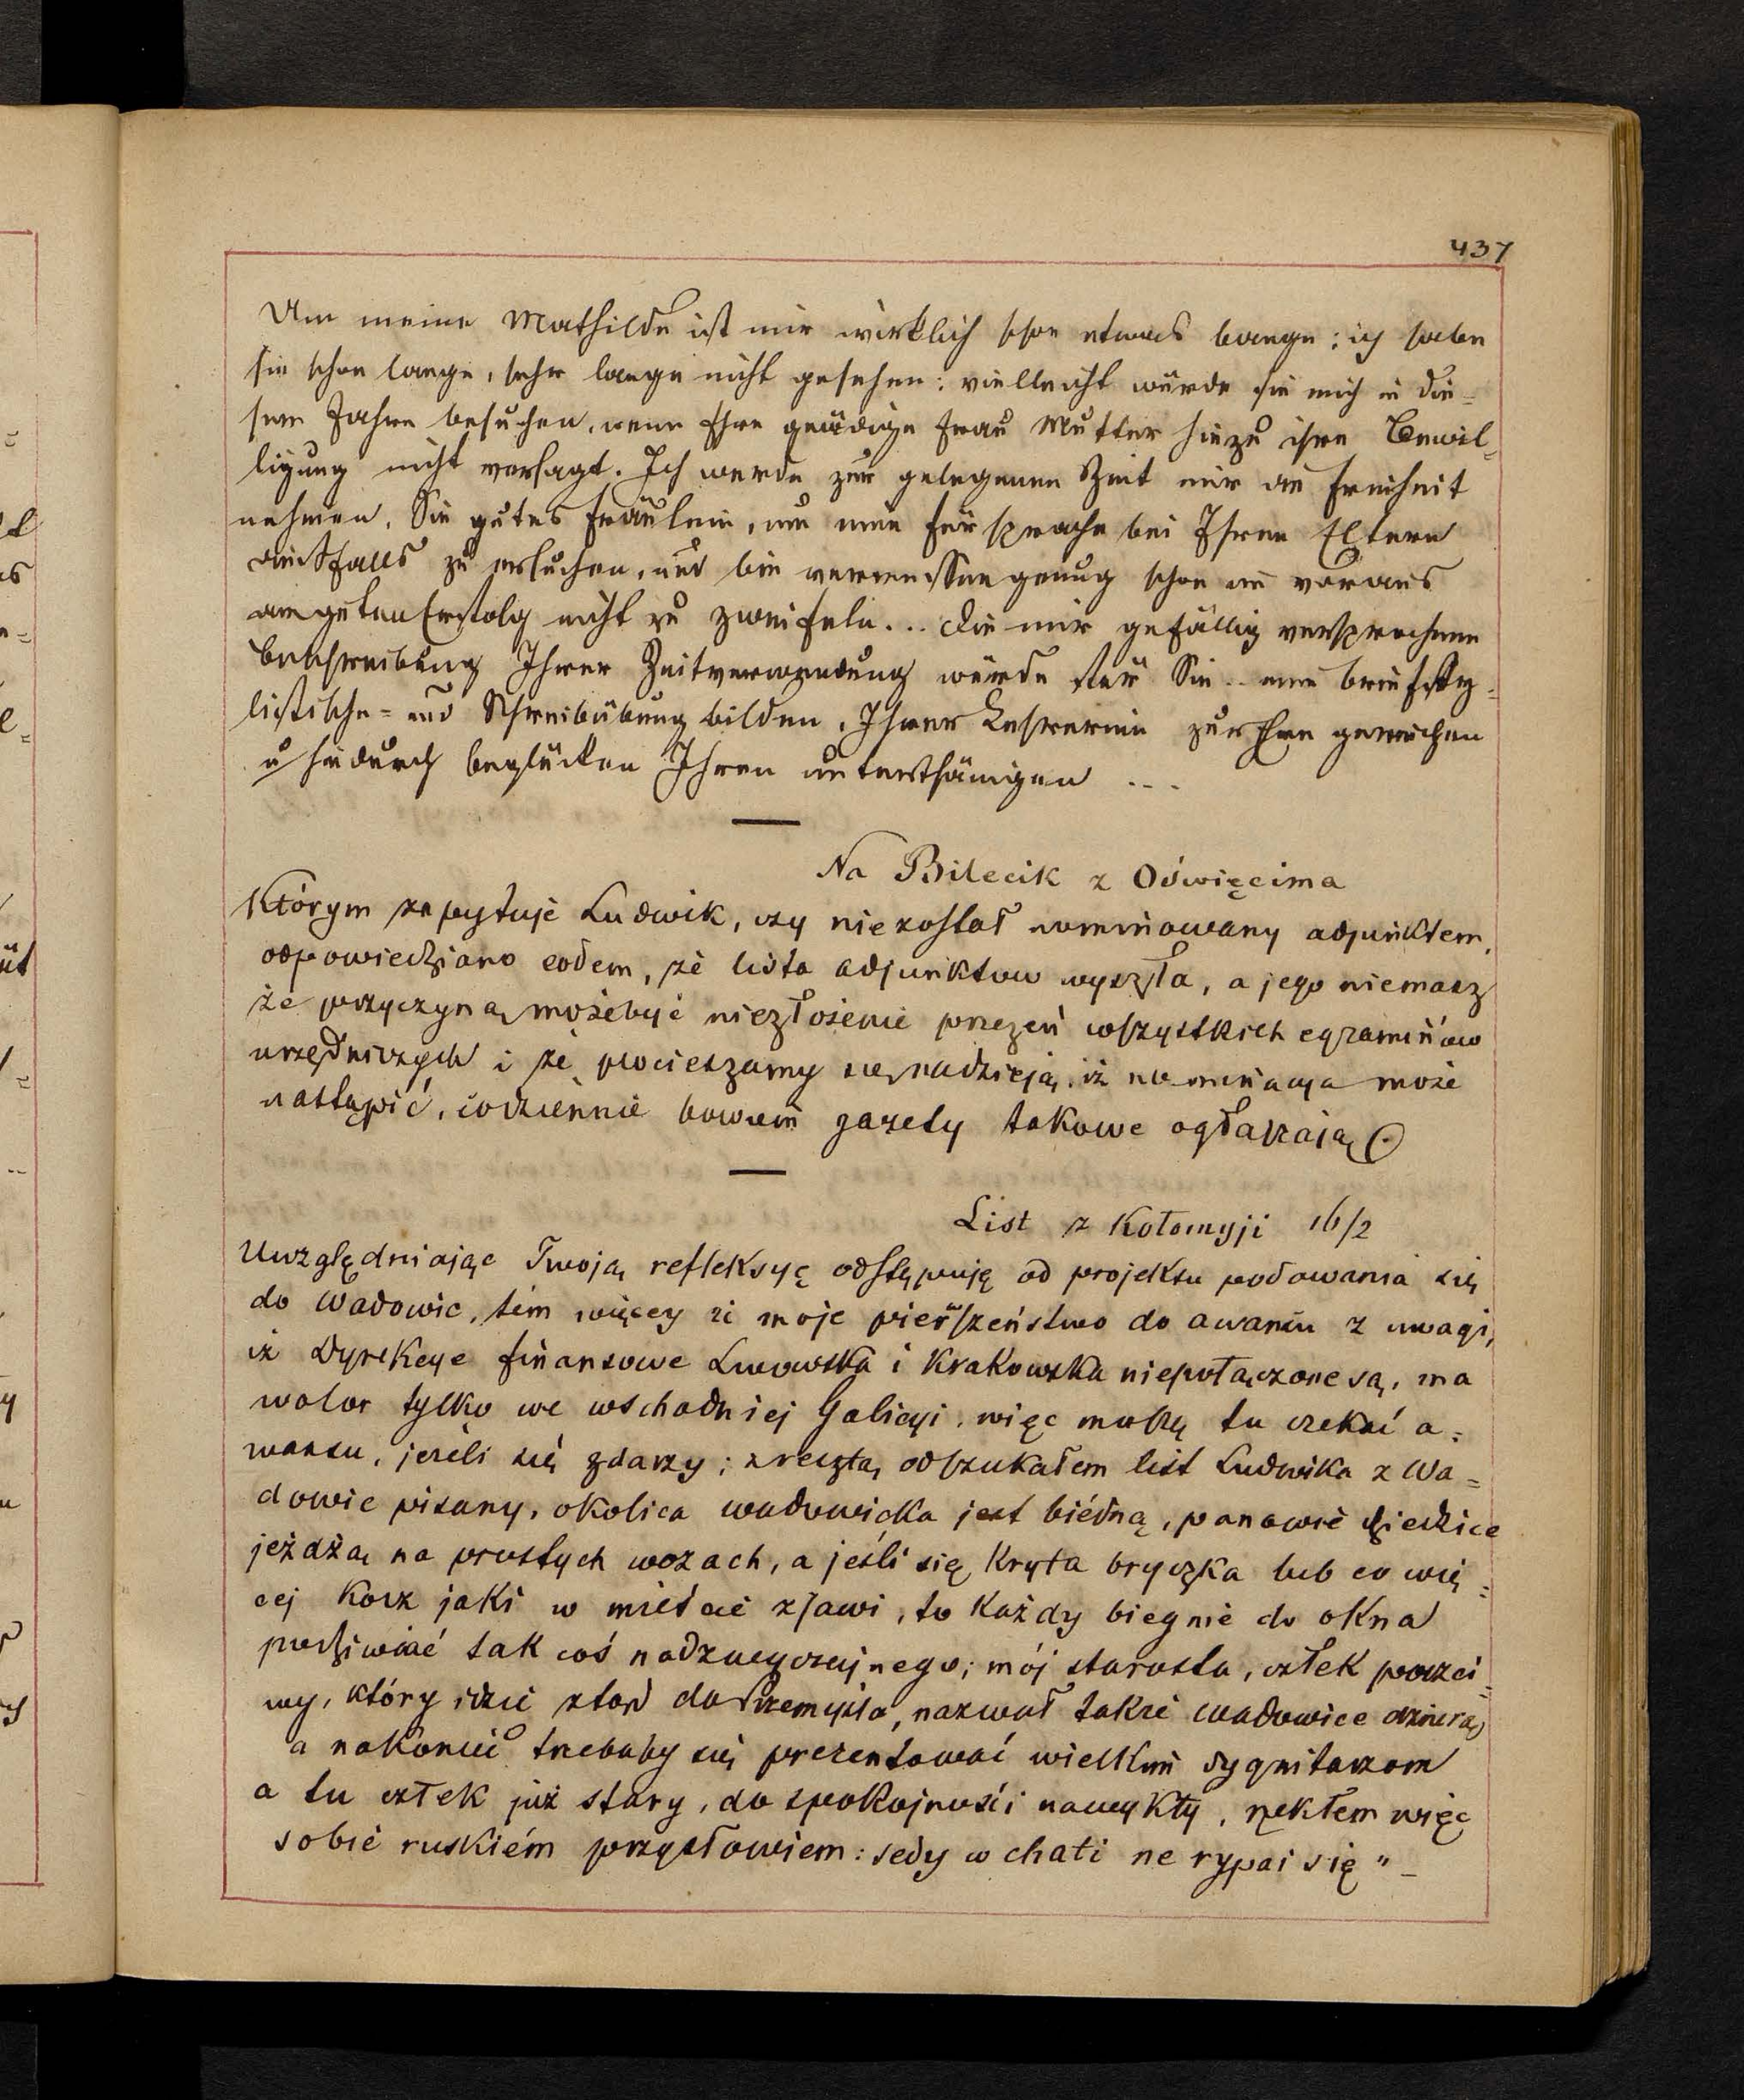 437
Um meine Mathilde ist mir wirklich schon etwas bange; ich habe
sie schon lange, sehr lange nicht gesehen: vielleicht würde sie mich in die=
sem Jahre besuchen, wenn Ihre gnädige Frau Mutter hiezu ihre Bewil=
ligung nicht versagt. Ich werde zur gelegenen Zeit mir die Freiheit
nehmen, Sie gutes Fräulein, um eine Fürsprache bei Ihren Eltern
dießfalls zu ersuchen, und bin vermessen genug schon im voraus
am guten Erfolg nicht zu zweifeln... Die mir gefällig versprochene
Beschreibung Ihrer Zeitverwendung würde für Sie .. eine briefsty=
listische= und Schreibübung bilden, Ihrer Lehrerin zur Ehre gereichen
u hiedurch beglücken Ihren unterthänigen ...
Na Bilecik z Oświęcima
Którym zapytuje Ludwik, czy nie został nominowany adjunktem,
odpowiedziano eodem, że lista adjunktow wyszła, a jego niemasz
że przyczyną możebyć niezłożenie przezeń wszystkich egzaminów
urzędniczych i że pocieszamy się nadzieją, iż nominacya może
nastąpić, codziennie bowiem gazety takowe ogłaszają
List z Kołomyji 16/2
Uwzględniając Twoją refleksyę odstępuję od projektu podowania się
do Wadowic, tém więcey iż moje pierwszeństwo do awansu z uwagi,
iż Dyrekcye finansowe Lwowska i Krakowska niepołączone są, ma
walor tylko we wschodniej Galicyi, więc muszę tu czekać a=
wansu, jeżeli się zdarzy; zresztą odszukałem list Ludwika z Wa=
dowic pisany, okolica wadowicka jest biédną, panowie dziedzice
jeżdżą na prostych wozach, a jeśli się kryta bryczka lub co wię=
cej kosz jaki w mieście zjawi, to każdy biegnie do okna
podziwiać tak coś nadzwyczajnego; mój starosta, człek poczci=
wy, który idzie ztąd do Przemyśla, nazwał także Wadowice dziurą,
a nakoniec trzebaby się prezentować wielkim dygnitarzom
a tu człek już stary, do spokojności nawykły, rzekłem więc
sobie ruskiém przysłowiem: sedy w chati ne rypai się "_